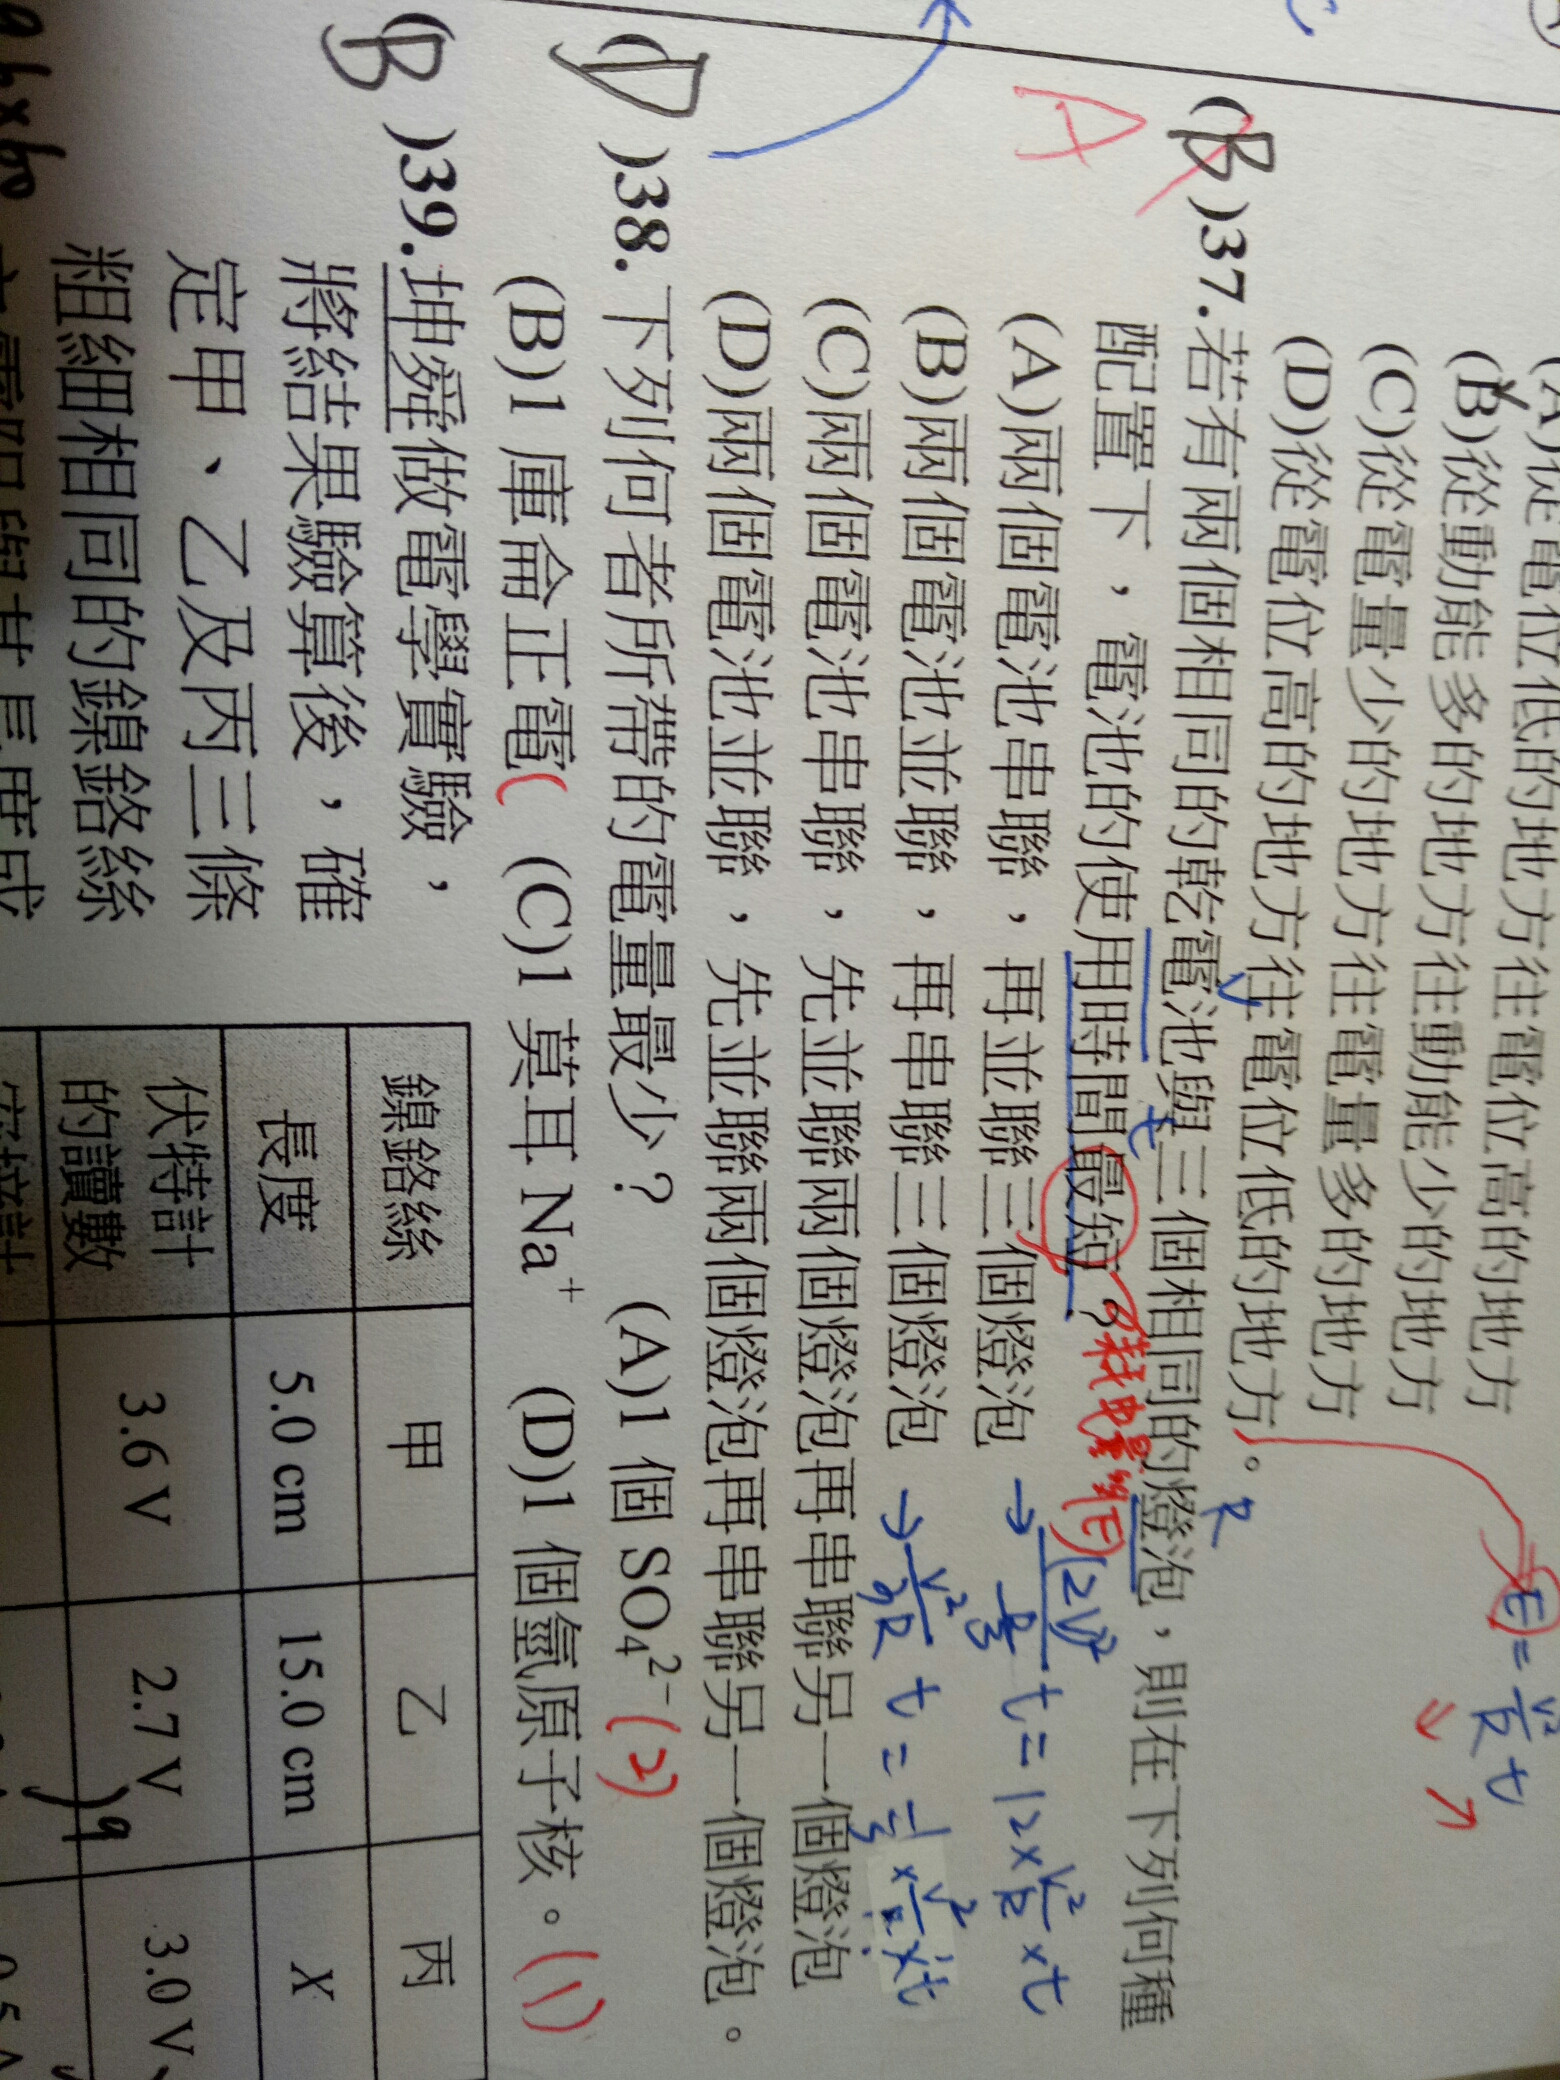 (A)從電位低的地方往電位高的地方
(B)從動能多的地方往動能少的地方
(C)從電量少的地方往電量多的地方
(D)從電位高的地方往電位低的地方。
E = V²/R t
(B)37.若有兩個相同的乾電池與三個相同的燈泡,則在下列何種
A
V
t
R
配置下,電池的使用時間最短?
耗電量
(E)
(A)兩個電池串聯,再並聯三個燈泡
→ (2V)²/(R/3) t = 12 × V²/R × t
(B)兩個電池並聯,再串聯三個燈泡
→ V²/3R t = 1/3 × V²/R × t
(C)兩個電池串聯,先並聯兩個燈泡再串聯另一個燈泡
(D)兩個電池並聯,先並聯兩個燈泡再串聯另一個燈泡。
(D)38.下列何者所帶的電量最少? (A)1 個 SO₄²⁻ (2)
(B)1 庫侖正電 (C)1 莫耳 Na⁺ (D)1 個氫原子核。(1)
(B)39.坤舜做電學實驗,
將結果驗算後,確
定甲、乙及丙三條
粗細相同的鎳鉻絲
鎳鉻絲 甲 乙 丙
長度 5.0 cm 15.0 cm X
伏特計的讀數 3.6 V 2.7 V 3.0 V